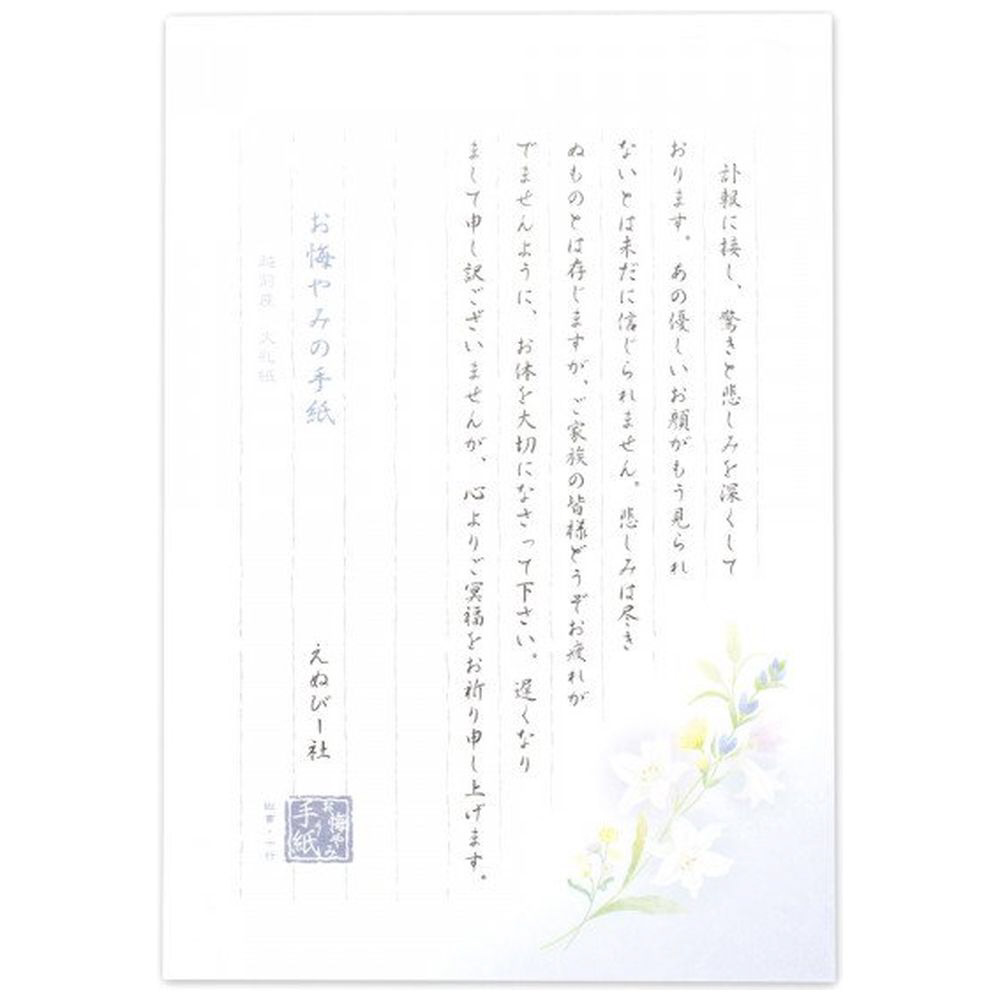 訃報に接し、驚きと悲しみを深くして
おります。あの優しいお顔がもう見られ
ないとは未だに信じられません。悲しみは尽き
ぬものとは存じますが、ご家族の皆様どうぞお疲れが
でませんように、お体を大切になさって下さい。遅くなり
まして申し訳ございませんが、心よりご冥福をお祈り申し上げます。
お悔やみの手紙
えぬびー社
越前産 大礼紙
お悔やみ
手紙